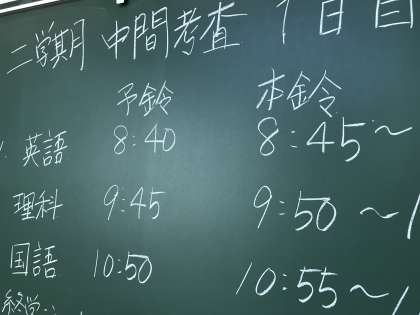 二学期 中間考査 1日目
予鈴 本鈴
英語 8:40 8:45~
理科 9:45 9:50~1
国語 10:50 10:55~1
終学